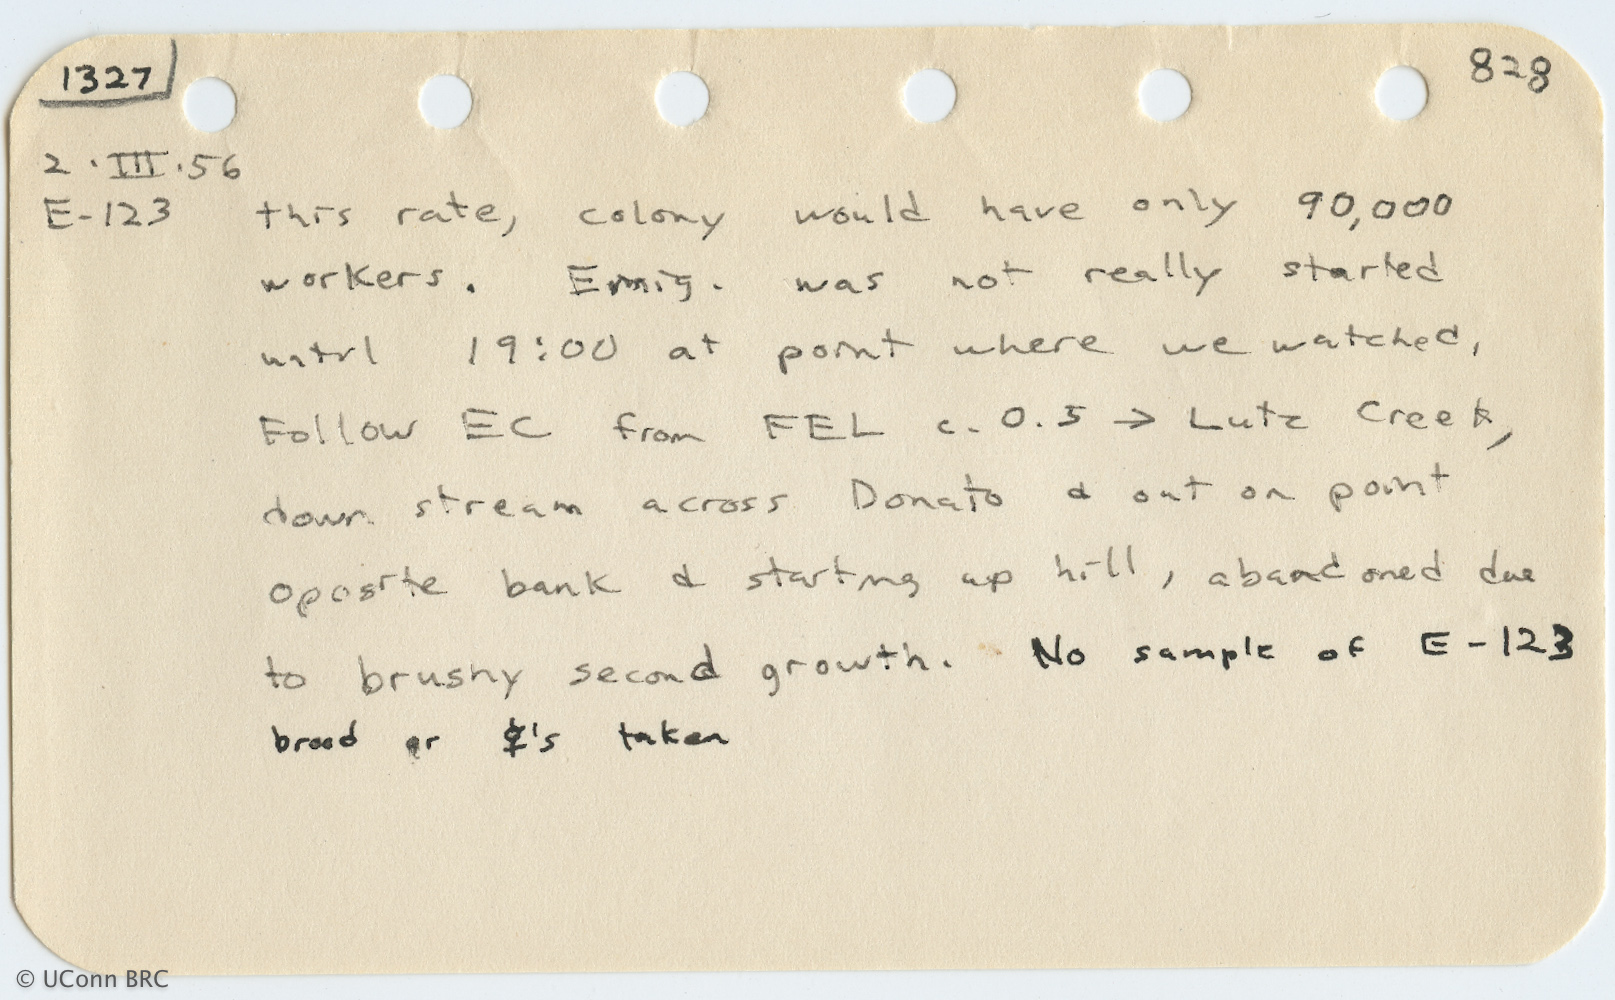 1327
828
2 · III · 56
E-123 this rate, colony would have only 90,000
workers. Emig. was not really started
until 19:00 at point where we watched,
Follow EC from FEL c. 0.5 → Lutz Creek,
down stream across Donato & out on point
oposite bank & starting up hill, abandoned due
to brushy second growth. No sample of E-123
brood or ☿'s taken
© UConn BRC